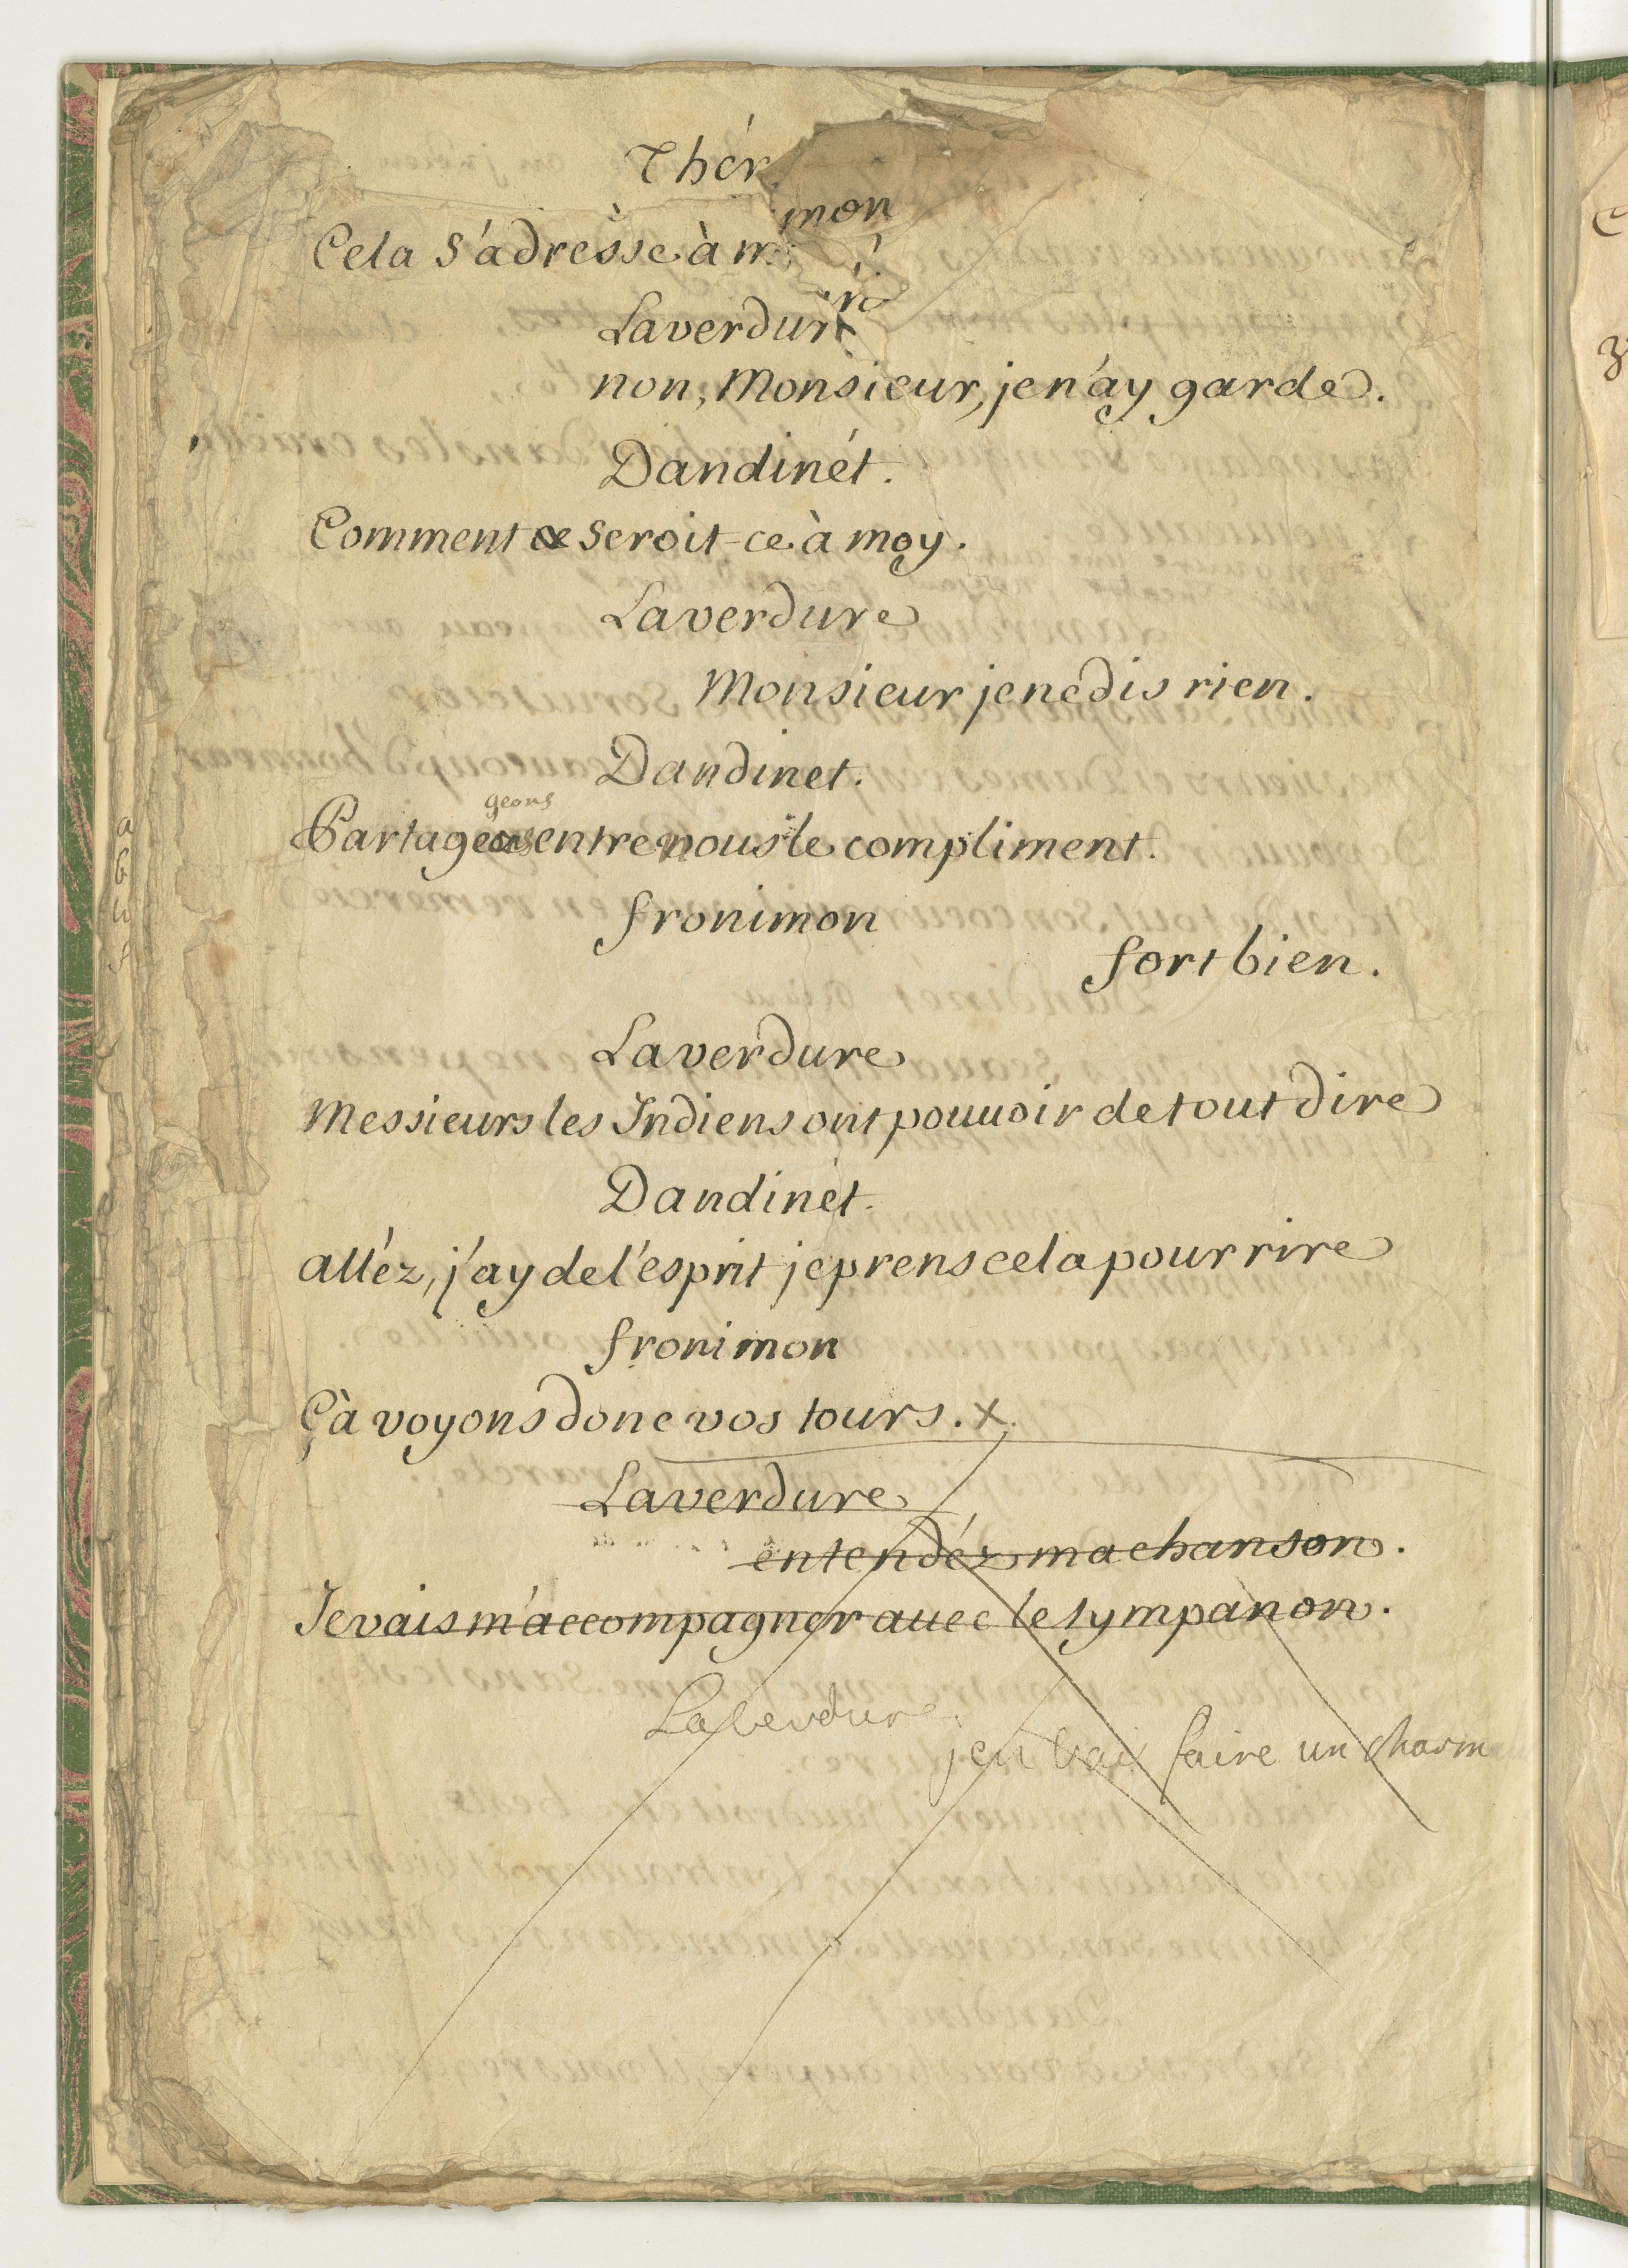 Thér
mon
Cela s'adrèsse à m
Laverdure
non, Monsieur, je n'ay garde.
Dandinét.
Comment ce seroit-ce à moy.
Laverdure
Monsieur je ne dis rien.
Dandinet.
geons
Partageons entre nous le compliment.
fronimon
fort bien.
Laverdure
Messieurs les Indiens ont pouuoir de tout dire
Dandinèt.
alléz, j'ay de l'ésprit je prens cela pour rire
fronimon
Çà voyons donc vos tours. x.
Laverdure
entendéz ma chanson.
Je vais m'accompagner auec le tympanon.
Laverdure
jen vais faire un charm
a
b
u
s